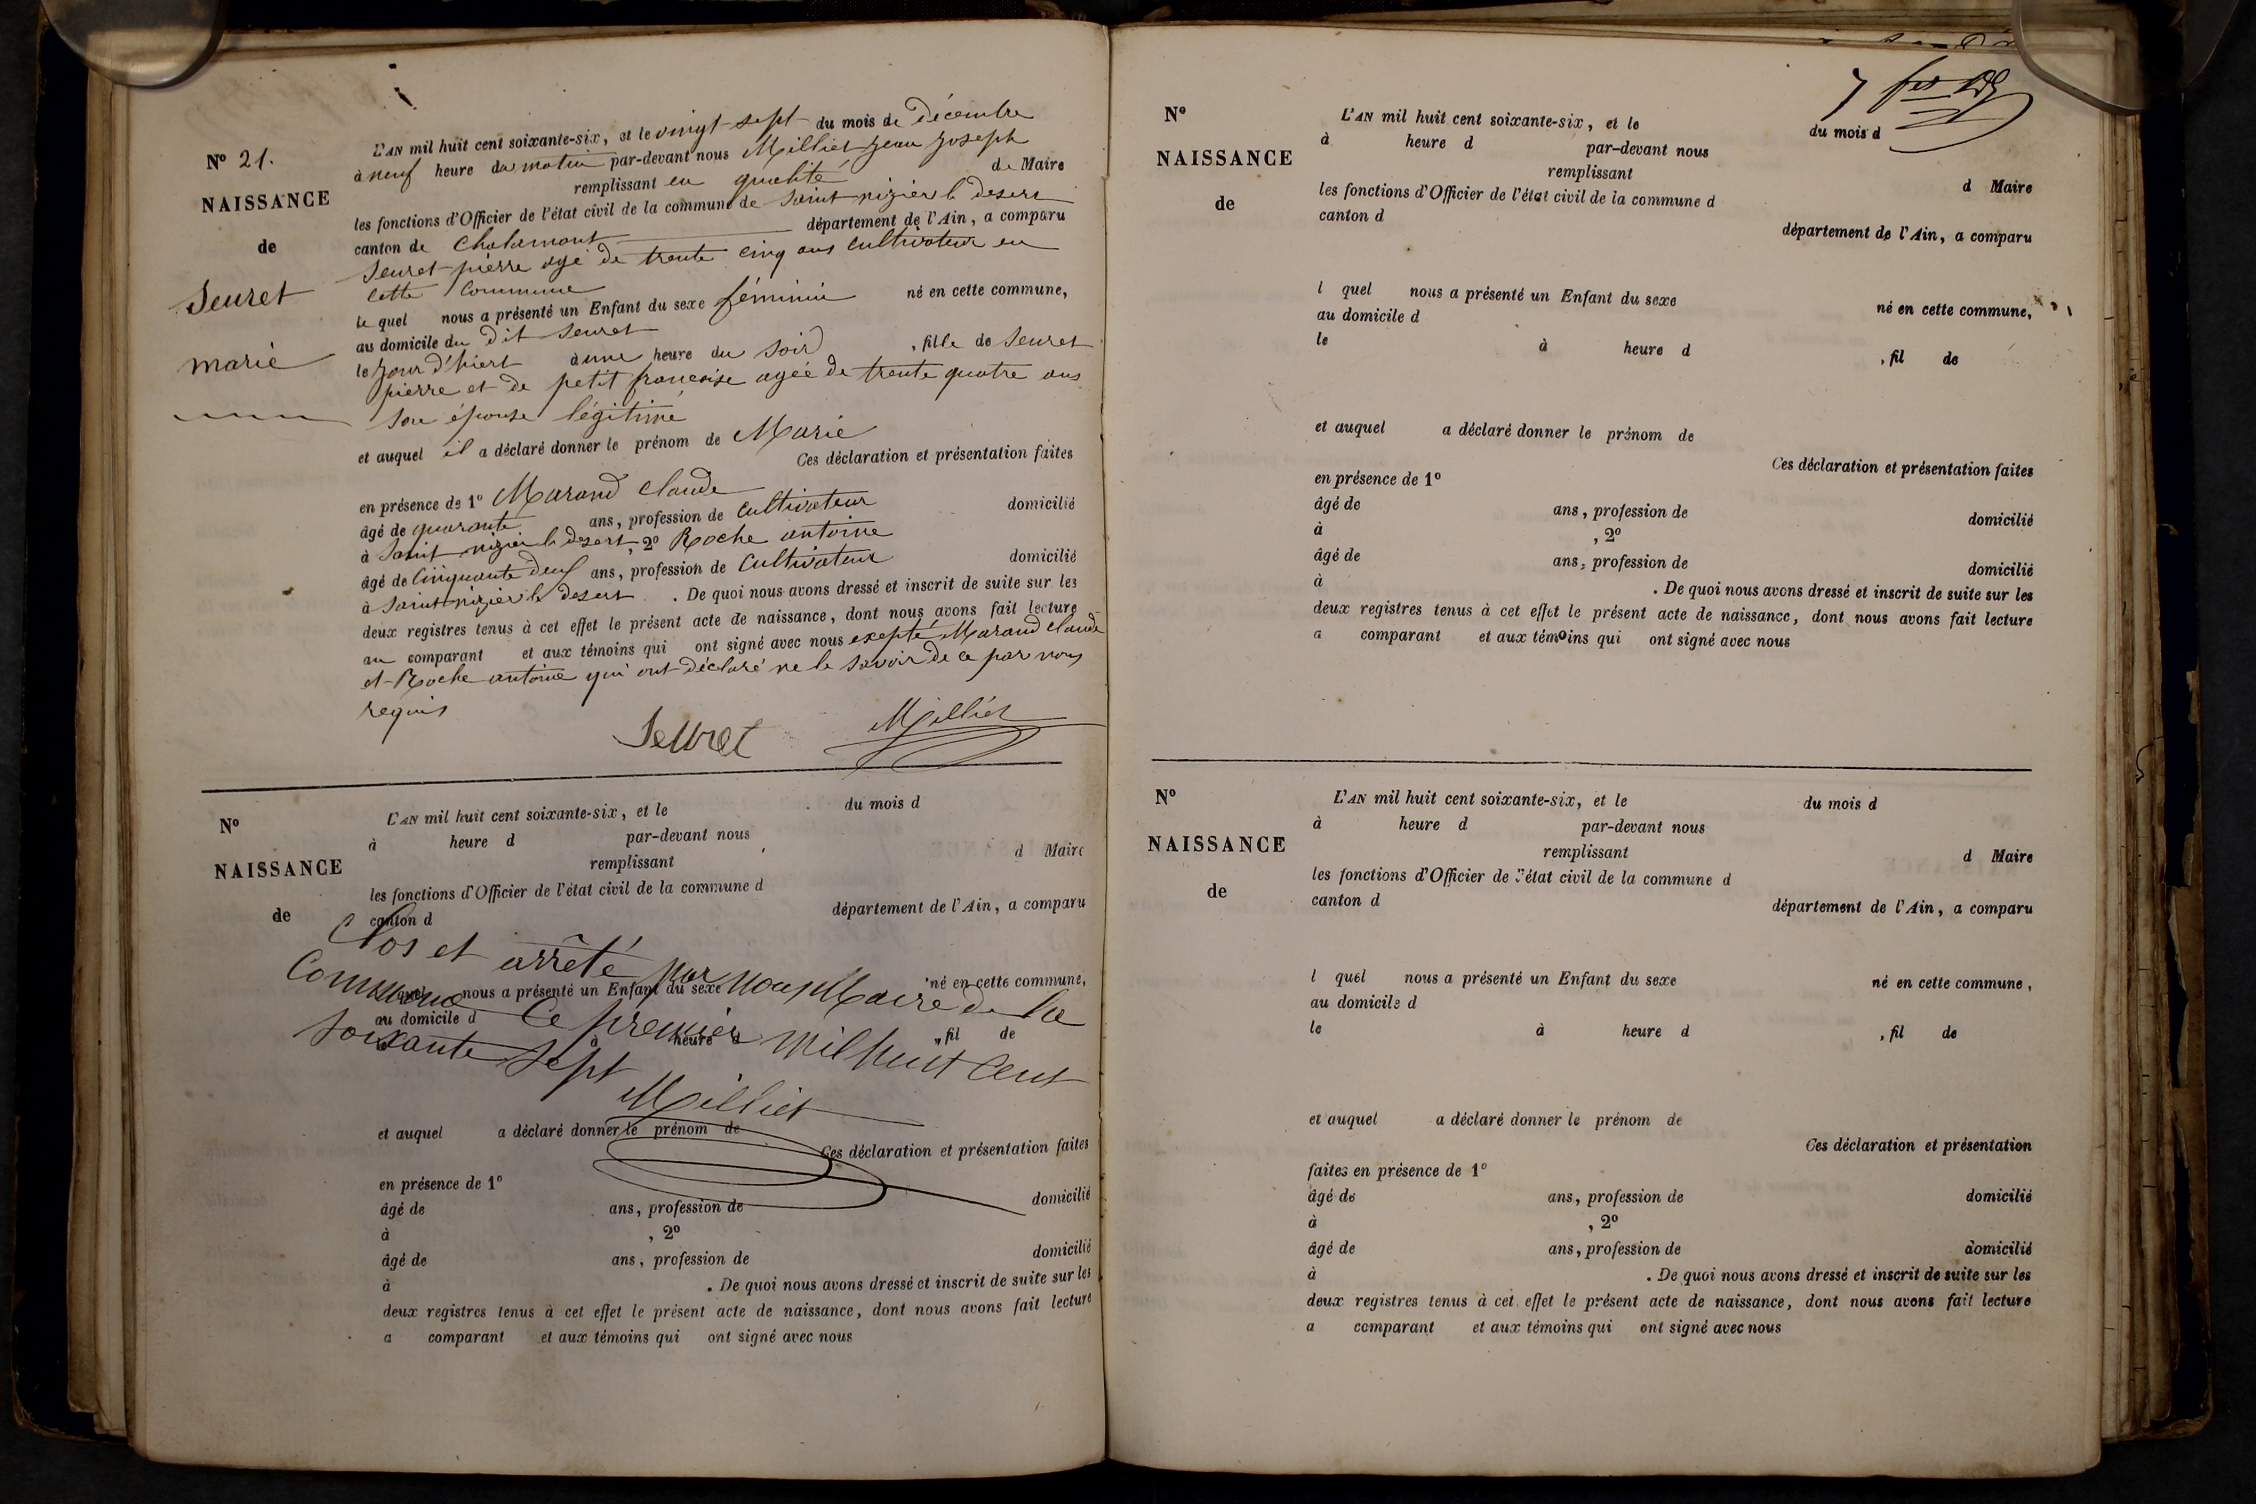 N° 21.
NAISSANCE
de
Seuret
marie
L'AN mil huit cent soixante-six, et le vingt sept du mois de Décembre
à neuf heure du matin par-devant nous Milliet Jean Joseph
remplissant en qualité de Maire
les fonctions d'Officier de l'état civil de la commune de Saint nizier le desert
canton de Chalamont département de l'Ain, a comparu
Seuret pierre agé de trente cinq ans cultivateur en
cette commune
le quel nous a présenté un Enfant du sexe féminin né en cette commune,
au domicile du dit Seuret
le jour d'hiert à une heure du soir, fille de Seuret
pierre et de petit françoise agée de trente quatre ans
son épouse légitime
et auquel il a déclaré donner le prénom de Marie
Ces déclaration et présentation faites
en présence de 1° Marand claude
âgé de quarante ans, profession de cultivateur domicilié
à Saint nizier le desert, 2° Roche antoine
âgé de Cinquante deux ans, profession de Cultivateur domicilié
à Saint nizier le desert. De quoi nous avons dressé et inscrit de suite sur les
deux registres tenus à cet effet le présent acte de naissance, dont nous avons fait lecture
au comparant et aux témoins qui ont signé avec nous exepté Marand claude
et Roche antoine qui ont déclaré ne le savoir de ce par nous
requis
Seuret Milliet
N°
NAISSANCE
de
L'AN mil huit cent soixante-six, et le du mois d
à heure d par-devant nous
remplissant d Maire
les fonctions d'Officier de l'état civil de la commune d
canton d département de l'Ain, a comparu
Clos et arrêté par nous Maire de la
quel nous a présenté un Enfant du sexe né en cette commune,
Commune Ce premier mil huit Cent
au domicile d
à heure d, fil de
soixante sept
Milliet
et auquel a déclaré donner le prénom de
Ces déclaration et présentation faites
en présence de 1°
âgé de ans, profession de domicilié
à , 2°
âgé de ans, profession de domicilié
à . De quoi nous avons dressé et inscrit de suite sur les
deux registres tenus à cet effet le présent acte de naissance, dont nous avons fait lecture
a comparant et aux témoins qui ont signé avec nous
7
N°
NAISSANCE
de
L'AN mil huit cent soixante-six, et le du mois d
à heure d par-devant nous
remplissant d Maire
les fonctions d'Officier de l'état civil de la commune d
canton d département de l'Ain, a comparu
l quel nous a présenté un Enfant du sexe né en cette commune,
au domicile d
le à heure d , fil de
et auquel a déclaré donner le prénom de
Ces déclaration et présentation faites
en présence de 1°
âgé de ans, profession de domicilié
à , 2°
âgé de ans, profession de domicilié
à . De quoi nous avons dressé et inscrit de suite sur les
deux registres tenus à cet effet le présent acte de naissance, dont nous avons fait lecture
a comparant et aux témoins qui ont signé avec nous
N°
NAISSANCE
de
L'AN mil huit cent soixante-six, et le du mois d
à heure d par-devant nous
remplissant d Maire
les fonctions d'Officier de l'état civil de la commune d
canton d département de l'Ain, a comparu
l quel nous a présenté un Enfant du sexe né en cette commune,
au domicile d
le à heure d , fil de
et auquel a déclaré donner le prénom de
Ces déclaration et présentation
faites en présence de 1°
âgé de ans, profession de domicilié
à , 2°
âgé de ans, profession de domicilié
à . De quoi nous avons dressé et inscrit de suite sur les
deux registres tenus à cet effet le présent acte de naissance, dont nous avons fait lecture
a comparant et aux témoins qui ont signé avec nous